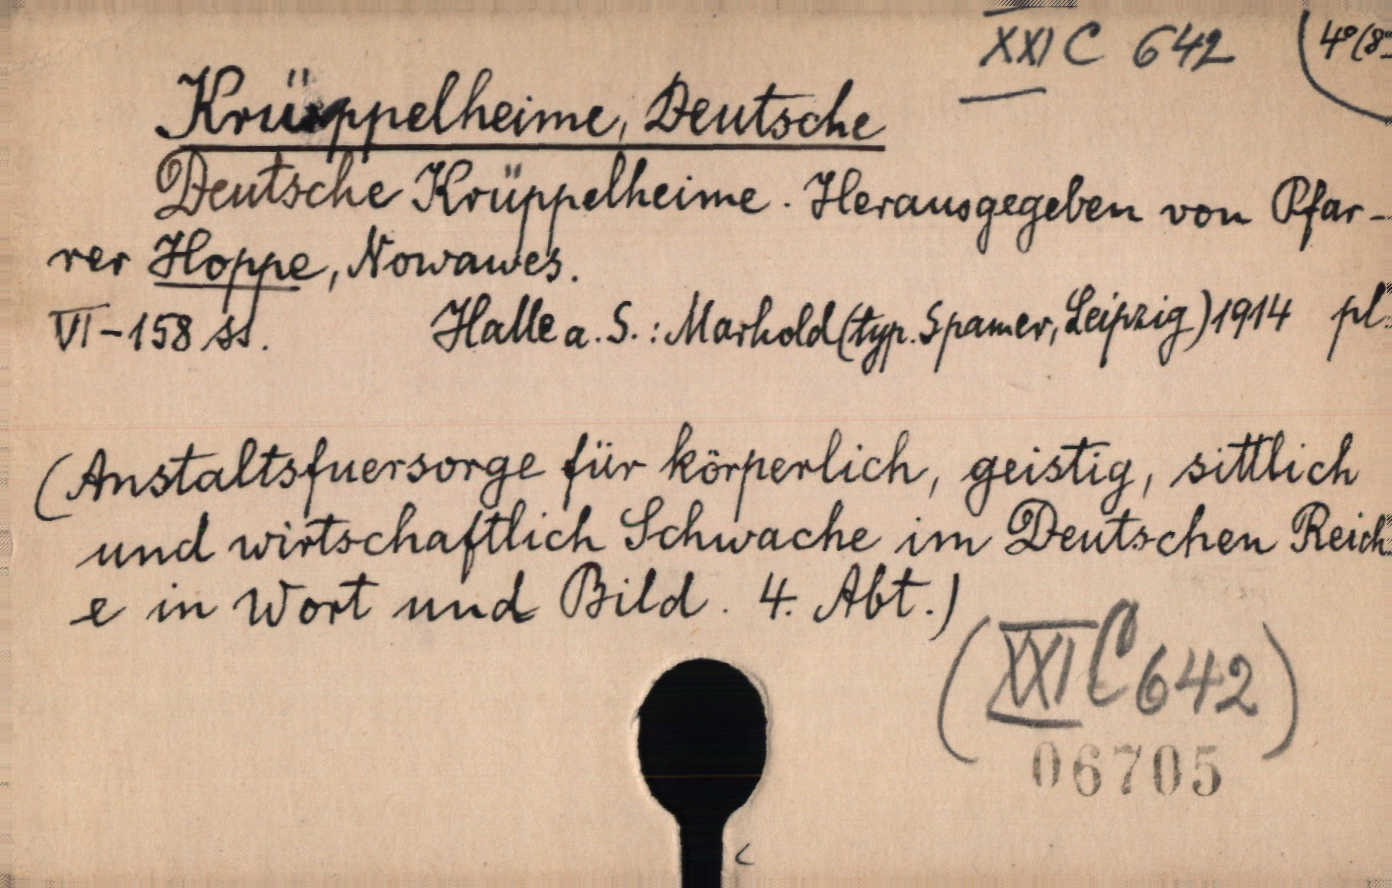 XXI C 642
4°(8°
Krüppelheime, Deutsche
Deutsche Krüppelheime. Herausgegeben von Pfar-
rer Hoppe, Nowawes.
VI-158 ss. Halle a. S.: Marhold (typ. Spamer, Leipzig) 1914 pl.
(Anstaltsfuersorge für körperlich, geistig, sittlich
und wirtschaftlich Schwache im Deutschen Reich
e in Wort und Bild. 4. Abt.)
(XXI C 642)
06705